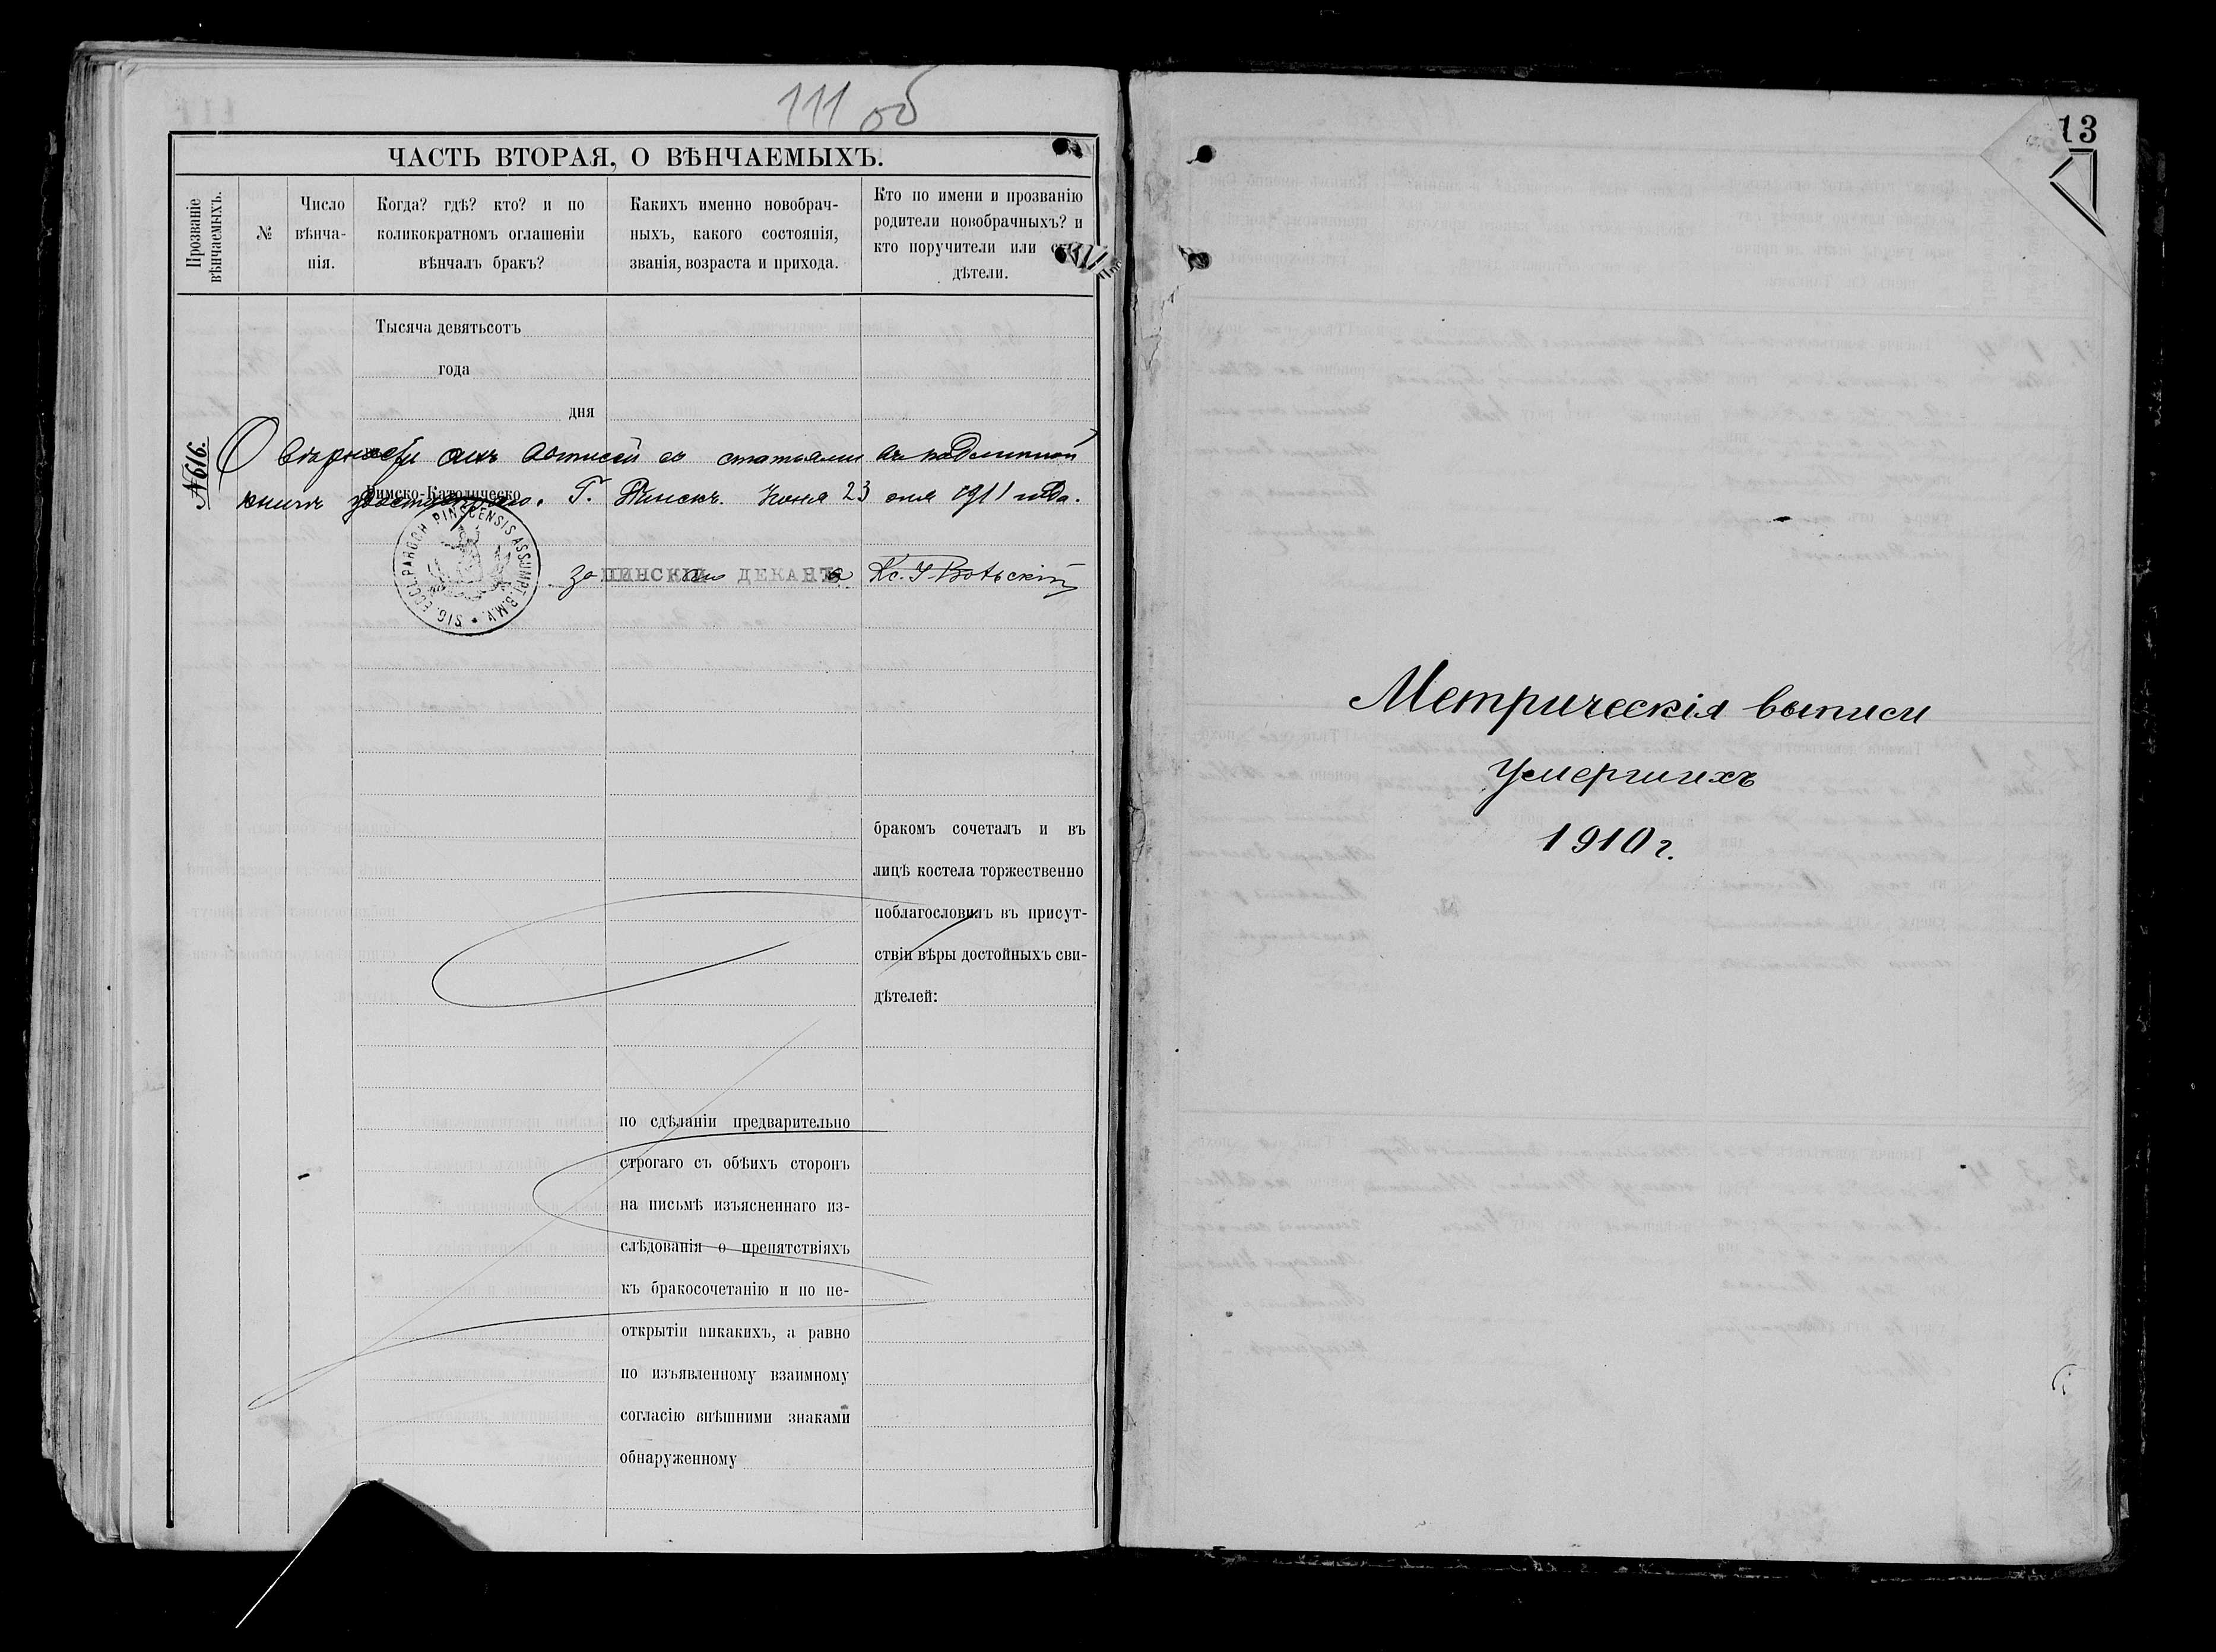 111 об
ЧАСТЬ ВТОРАЯ, О ВѢНЧАЕМЫХЪ.
Прозваніе вѣнчаемыхъ.
№
Число
вѣнча-
нія.
Когда? гдѣ? кто? и по
коликократномъ оглашеніи
вѣнчалъ бракъ?
Какихъ именно новобрач-
ныхъ, какого состоянія,
званія, возраста и прихода.
Кто по имени и прозванію
родители новобрачныхъ? и
кто поручители или
дѣтели.
Тысяча девятьсотъ
года
дня
№616.
О вѣрности сихъ выписей съ статьями въ подлинной
книгѣ удостовѣряю. Г. Пинскъ. Іюня 23 дня 1911 года.
Римско-Католическо
SIG. ECCL. PAROCH. PINSCENSIS ASSUMPT. B.M.V.
За ПИНСКАго ДЕКАНТа Кс.
бракомъ сочеталъ и въ
лицѣ костела торжественно
поблагословилъ въ присут-
ствіи вѣры достойныхъ сви-
дѣтелей:
по сдѣланіи предварительно
строгаго съ обѣихъ сторонъ
на письмѣ изъясненнаго из-
слѣдованія о препятствіяхъ
къ бракосочетанію и по не-
открытіи никакихъ, а равно
по изъявленному взаимному
согласію внѣшними знаками
обнаруженному
13
Метрическія выписи
умершихъ
1910 г.